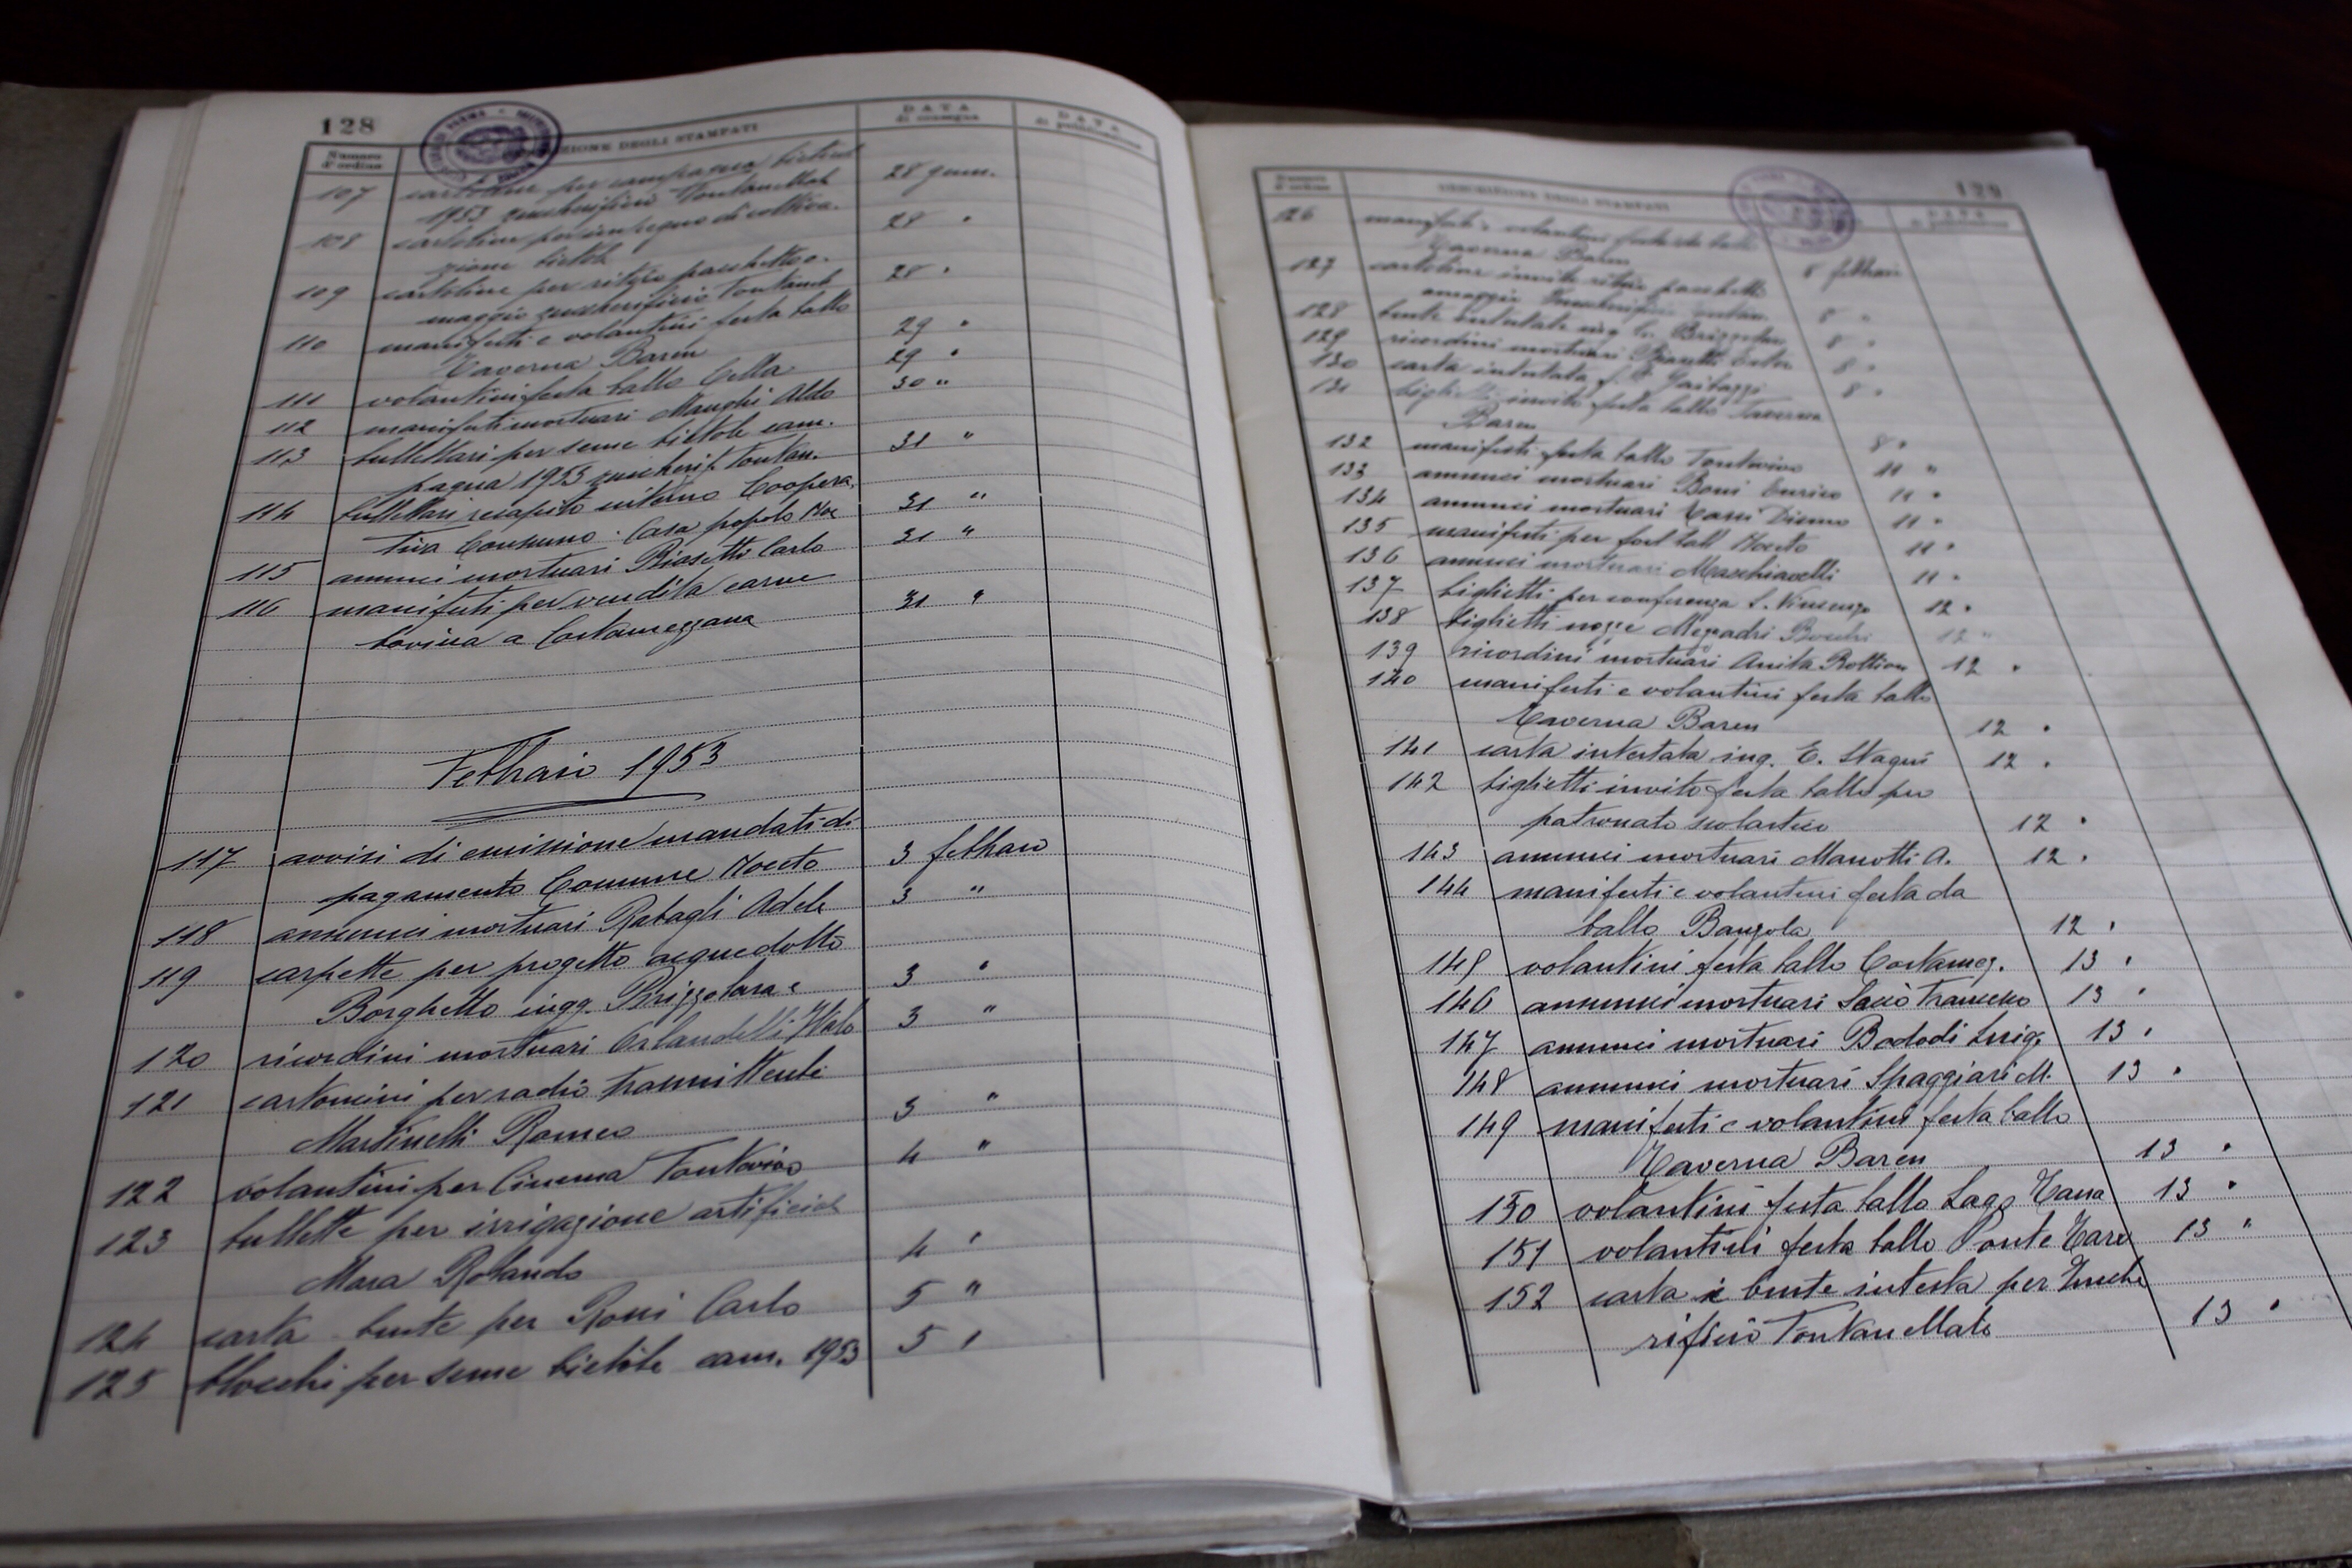 128
Numero d'ordine
ZIONE DEGLI STAMPATI
DATA di consegna
DATA di pubblicazione
107 cartoline per campagna bietole 28 genn.
1953 zuccherificio Fontanellato
108 cartoline per impegno di coltiva- 28 "
zione bietole
109 cartoline per ritiro pacchetto o- 28 "
maggio zuccherificio Fontanell
110 manifesti e volantini festa ballo 29 "
Taverna Baren
111 volantini festa ballo Cella 29 "
112 manifesti mortuari Manghi Aldo 30 "
113 bollettari per seme bietole cam-
pagna 1953 zuccherif. Fontan. 31 "
114 bollettari recapito interno Coopera-
tiva Consumo Casa popolo Noc 31 "
115 annunci mortuari Biasetti Carlo 31 "
116 manifesti per vendita carne
bovina a Costamezzana 31 "
Febbraio 1953
117 avvisi di emissione mandati di
pagamento Comune Noceto 3 febbraio
118 annunci mortuari Rabagli Adele 3 "
119 carpette per progetto acquedotto
Borghetto ingg. Brizzolara e 3 "
120 ricordini mortuari Orlandelli Italo 3 "
121 cartoncini per radio trasmittente
Martinelli Romeo 3 "
122 volantini per Cinema Fontevivo 4 "
123 bollette per irrigazione artificiale
Mara Rolando 4 "
124 carta buste per Rossi Carlo 5 "
125 blocchi per seme bietole cam. 1953 5 "
129
Numero d'ordine
DESCRIZIONE DEGLI STAMPATI
DATA
126 manifesti e volantini festa ballo
Taverna Baren 8 febbraio
127 cartoline invito ritiro pacchetti
omaggio 8 "
128 buste intestate ing. C. Brizzolara 8 "
129 ricordini mortuari Biasetti 8 "
130 carta intestata 8 "
131 biglietti invito festa ballo Taverna
Baren 8 "
132 manifesti festa ballo Fontevivo 11 "
133 annunci mortuari Boni Enrico 11 "
134 annunci mortuari 11 "
135 manifesti per foot ball Noceto 11 "
136 annunci mortuari Macchiavelli 11 "
137 biglietti per conferenza S. Vincenzo 12 "
138 biglietti nozze 12 "
139 ricordini mortuari Anita 12 "
140 manifesti e volantini festa ballo
Taverna Baren 12 "
141 carta intestata ing. E. Stagni 12 "
142 biglietti invito festa ballo per
patronato scolastico 12 "
143 annunci mortuari Manotti A. 12 "
144 manifesti e volantini festa da
ballo Bauzola 12 "
145 volantini festa ballo Costamez. 13 "
146 annunci mortuari Francesco 13 "
147 annunci mortuari Bododi Luigi 13 "
148 annunci mortuari Spaggiari M. 13 "
149 manifesti e volantini festa ballo
Taverna Baren 13 "
150 volantini festa ballo Lago 13 "
151 volantini festa ballo Ponte Taro 13 "
152 carta e buste intesta per Zucche
rificio Fontanellato 13 "